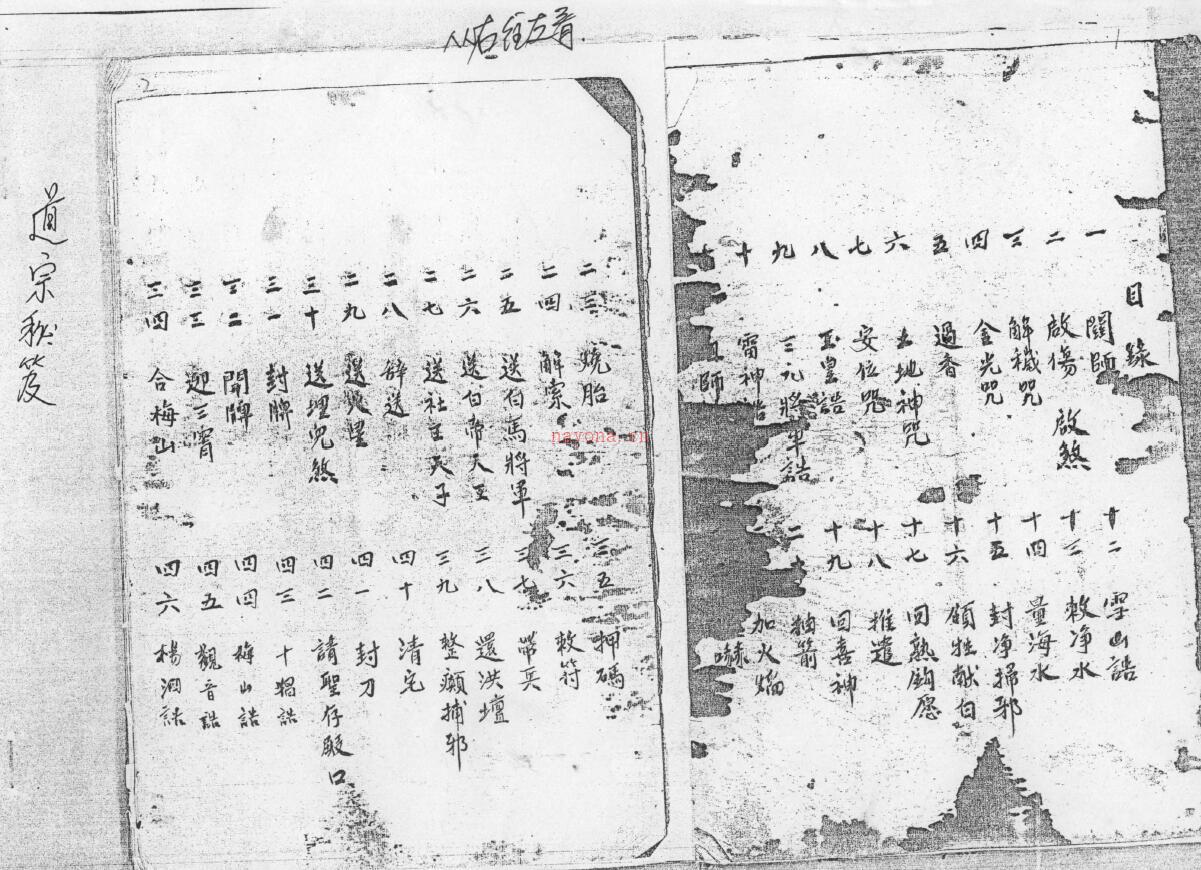 从右往左看
1
目錄
一 闗師
二 啟傷 啟煞
三 解穢咒
四 金光咒
五 過香
六 土地神咒
七 安位咒
八 玉皇誥
九 三元將軍誥
十 雷神誥
師
十二 雪山誥
十三 敕净水
十四 量海水
十五 封净掃邪
十六 領牲献白
十七 回熟鈎愿
十八 推遣
十九 回喜神
二十 抽箭
加火焰
2
二三 燒胎
二四 解索
二五 送白馬將軍
二六 送白帝天王
二七 送社王天子
二八 辞送
二九 送災星
三十 送埋児煞
三一 封牌
三二 開牌
三三 迎三霄
三四 合梅山
三五 押碼
三六 敕符
三七 帶兵
三八 還洪壇
三九 整癲捕邪
四十 清宅
四一 封刀
四二 請聖存殿口
四三 十猖誥
四四 梅山誥
四五 觀音誥
四六 楊泗誥
道宗秘笈
nayona.cn